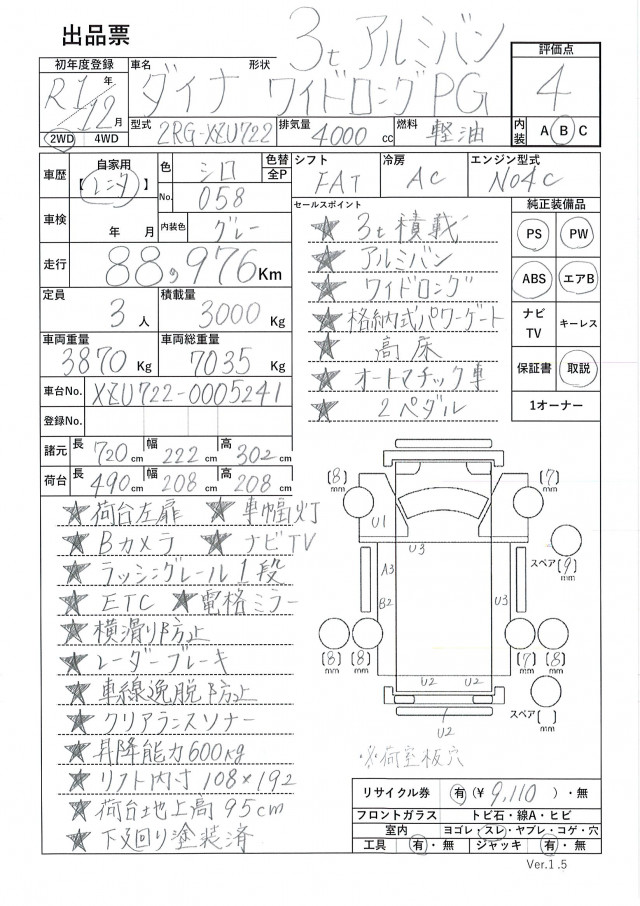 出品票
3t アルミバン
初年度登録 車名 形状 評価点
R1年 12月 ダイナ ワイドロングPG 4
2WD 4WD 型式 2RG-XZU722 排気量 4000 cc 燃料 軽油 内装 A B C
車歴 自家用 【レンタ】 色 シロ 色替 全P シフト FAT 冷房 AC エンジン型式 N04C
No. 058
車検 年 月 内装色 グレー
走行 88,976 Km
定員 3人 積載量 3000 Kg
車両重量 3870 Kg 車両総重量 7035 Kg
車台No. XZU722-0005241
登録No.
諸元 長 720 cm 幅 222 cm 高 302 cm
荷台 長 490 cm 幅 208 cm 高 208 cm
セールスポイント
★ 3t積載
★ アルミバン
★ ワイドロング
★ 格納式パワーゲート
★ 高床
★ オートマチック車
★ 2ペダル
純正装備品
PS PW
ABS エアB
ナビTV キーレス
保証書 取説
1オーナー
★ 荷台左扉 ★ 車幅灯
★ Bカメラ ★ ナビTV
★ ラッシングレール1段
★ ETC ★ 電格ミラー
★ 横滑り防止
★ レーダーブレーキ
★ 車線逸脱防止
★ クリアランスソナー
★ 昇降能力600kg
★ リフト内寸 108×192
★ 荷台地上高 95cm
★ 下廻り塗装済
[8] mm [7] mm
U1
U3
A3
B2
U3
スペア [9] mm
[8] mm [8] mm [7] mm [8] mm
U2 U2
U2
スペア [ ] mm
※荷室板穴
リサイクル券 有 (¥ 9,110)・無
フロントガラス トビ石・線A・ヒビ
室内 ヨゴレ・スレ・ヤブレ・コゲ・穴
工具 有・無 ジャッキ 有・無
Ver.1.5